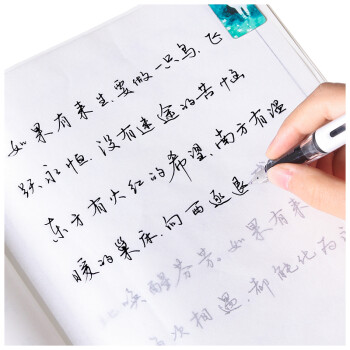 如果有来生,要做一只鸟,飞
跃永恒,没有迷途的苦恼
东方有火红的希望,南方有温
暖的巢床,向西逐退
唤醒芬芳。如果有来
次相遇,都能化为